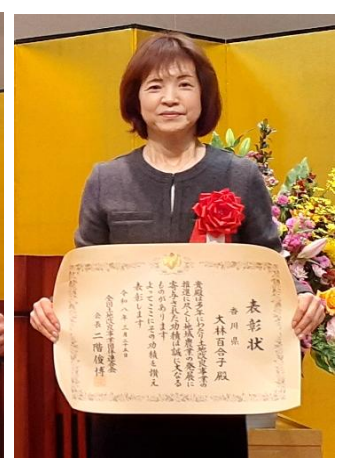 表彰状
香川県
大林百合子 殿
貴殿は多年にわたり土地改良事業の
推進に尽くし地域農業の発展に
寄与された功績は誠に大なる
ものがあります
よってここにその功績を讃え
表彰します
令和八年三月二十五日
全国土地改良事業団体連合会
会長 二階俊博